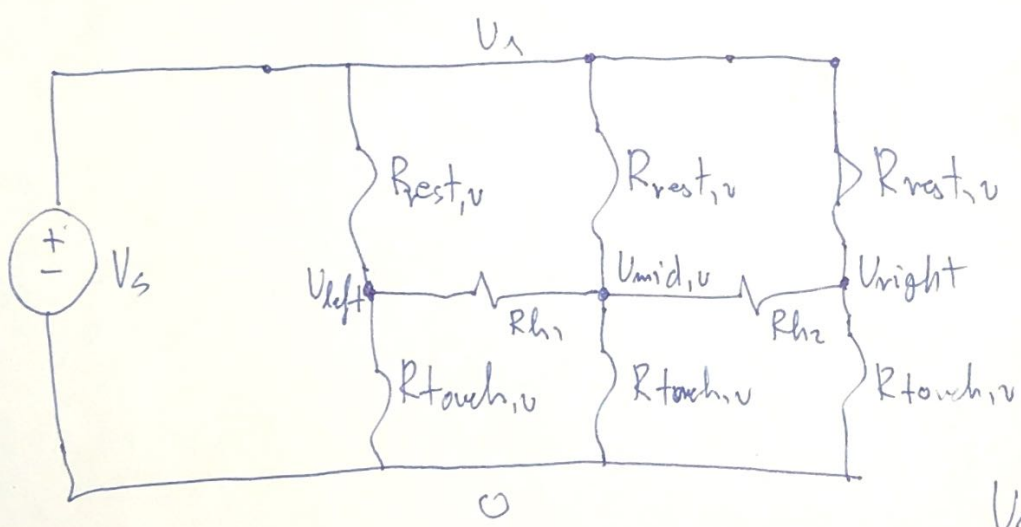 U1
+
-
Vs
Rrest,v
Rrest,v
Rrest,v
Uleft
Umid,v
Uright
Rh1
Rh2
Rtouch,v
Rtouch,v
Rtouch,v
0